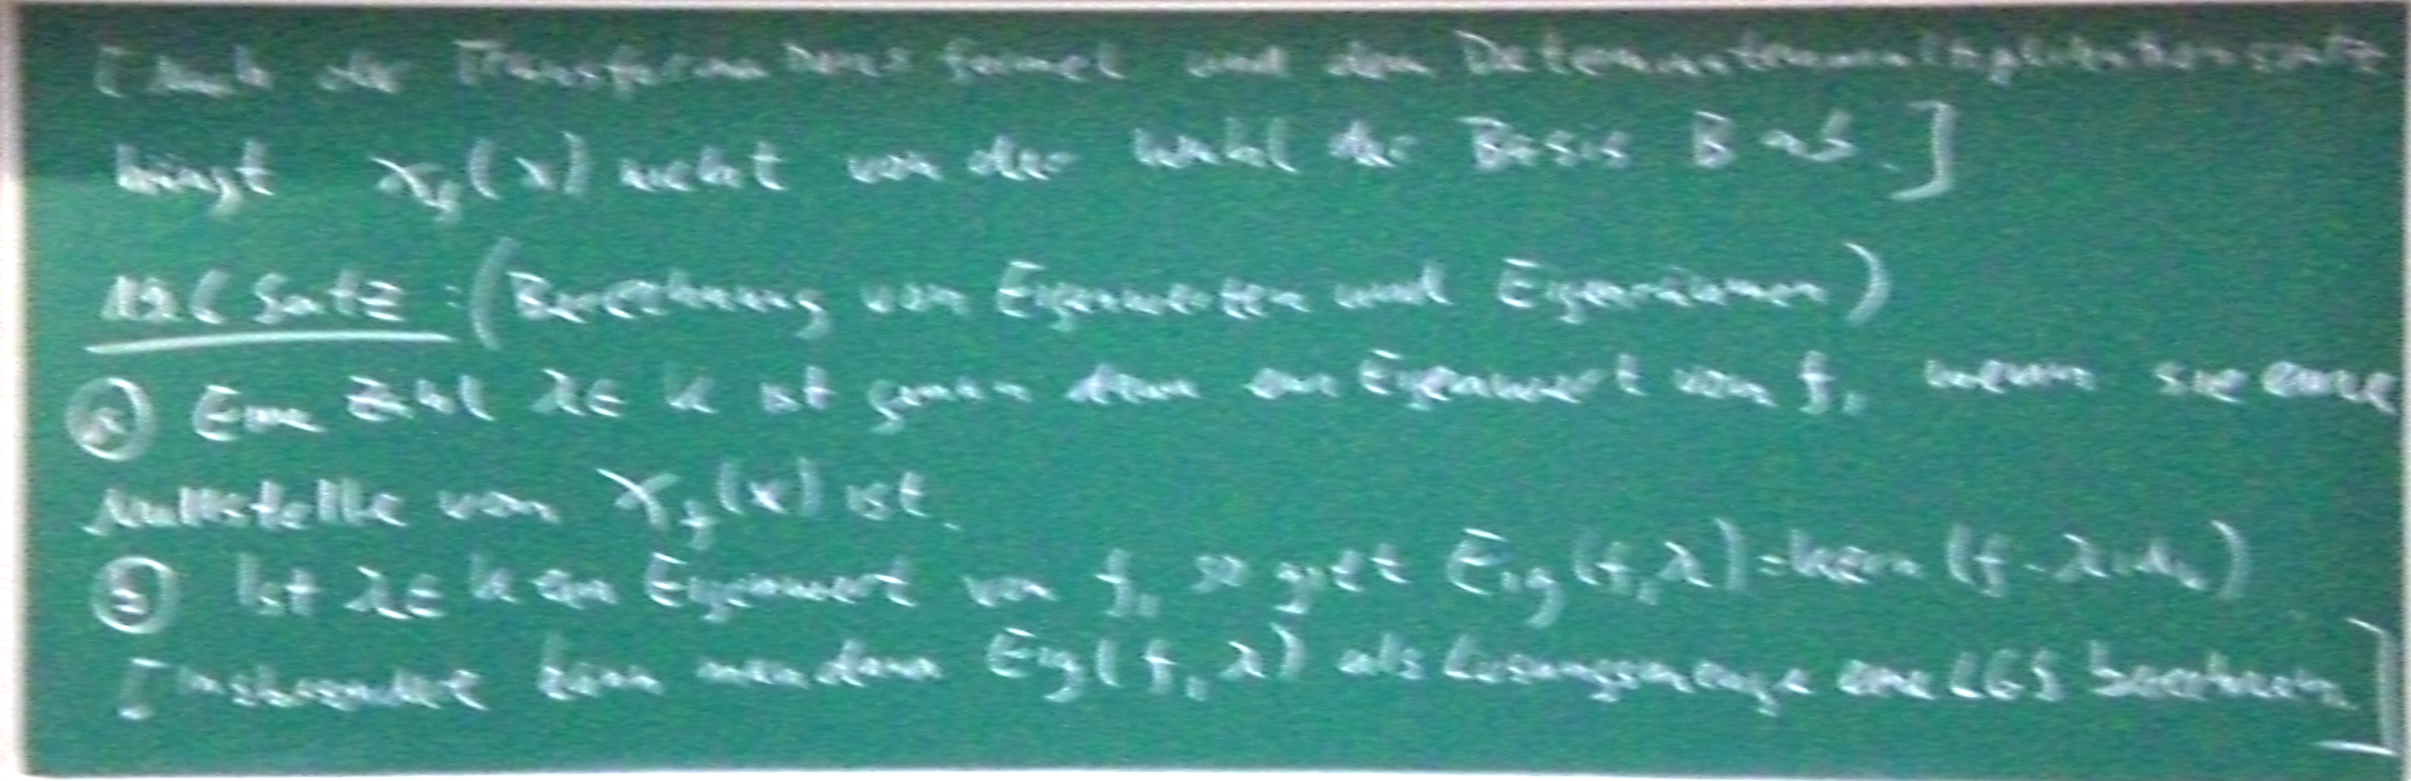 [Nach der Transformationsformel und dem Determinantenmultiplikationssatz
hängt χ_f(x) nicht von der Wahl der Basis B ab.]
12.6 Satz: (Berechnung von Eigenwerten und Eigenräumen)
ⓐ Eine Zahl λ ∈ K ist genau dann ein Eigenwert von f, wenn sie eine
Nullstelle von χ_f(x) ist.
ⓑ Ist λ ∈ K ein Eigenwert von f, so gilt Eig(f, λ) = kern(f - λ id_V)
[Insbesondere kann man dann Eig(f, λ) als Lösungsmenge eine LGS berechnen]